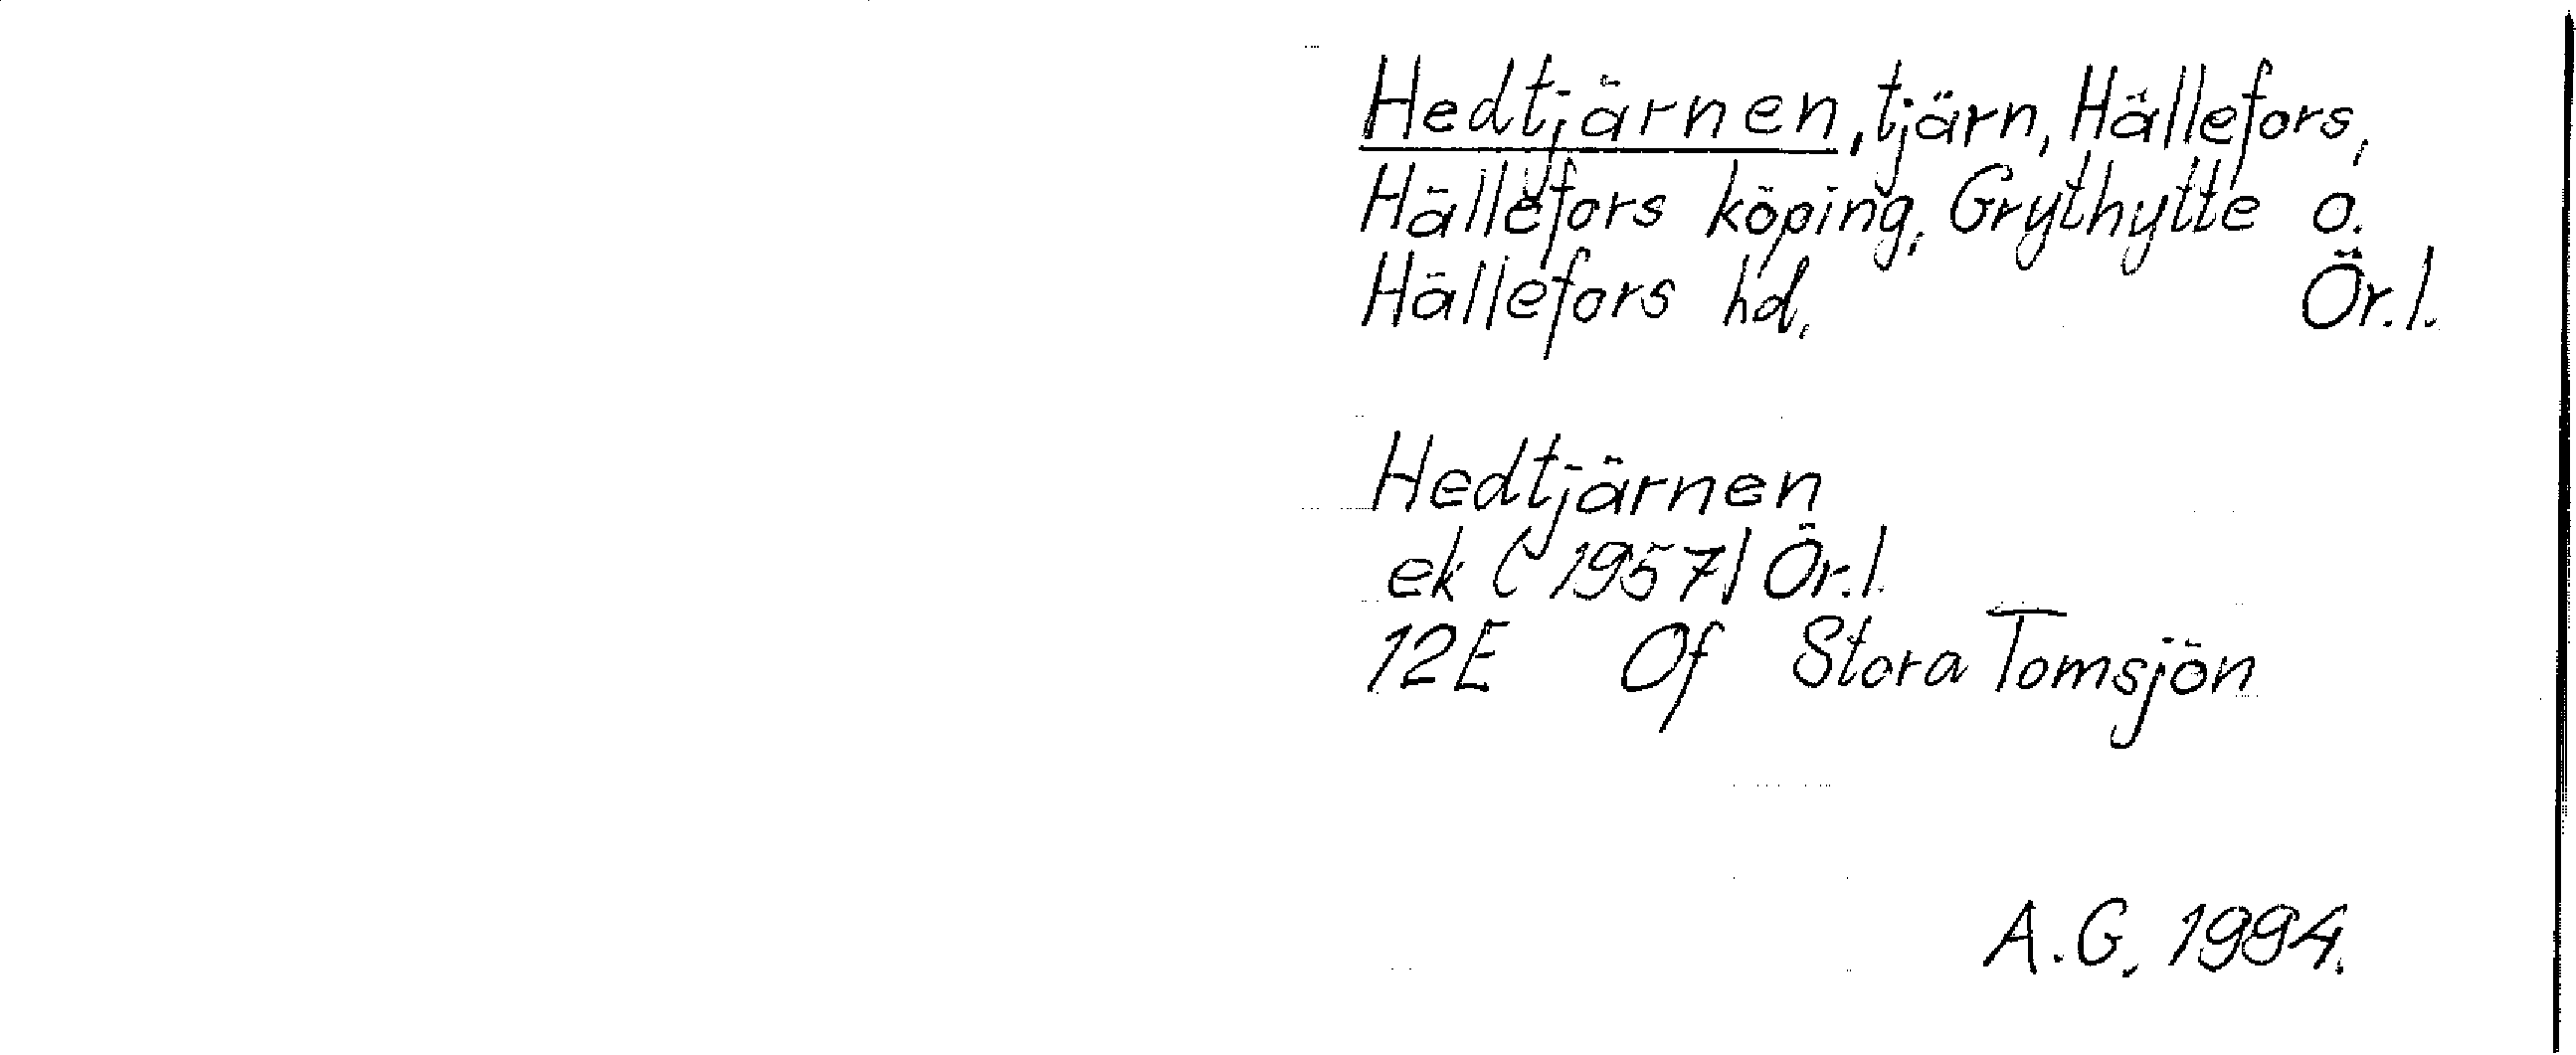 Hedtjärnen, tjärn, Hällefors,
Hällefors köping, Grythytte o.
Hällefors hd. Ör.l.
Hedtjärnen
ek (1957) Ör.l.
12E Of Stora Tomsjön
A.G. 1994.